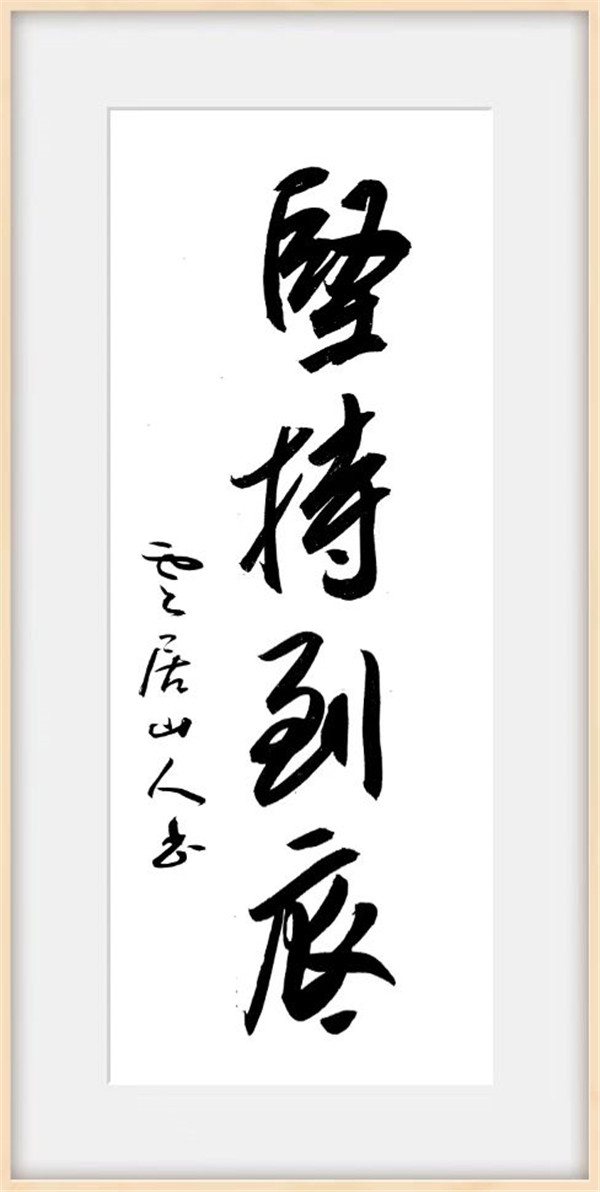 堅持到底
雲居山人书